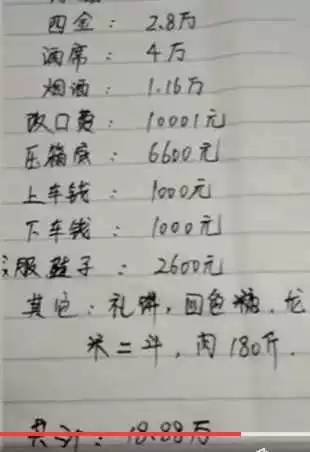 四金：2.8万
酒席：4万
烟酒：1.16万
改口费：10001元
压箱底：6600元
上车钱：1000元
下车钱：1000元
服鞋子：2600元
其它：礼饼，四色糖，龙
米二斗，肉180斤.
共计：18.88万